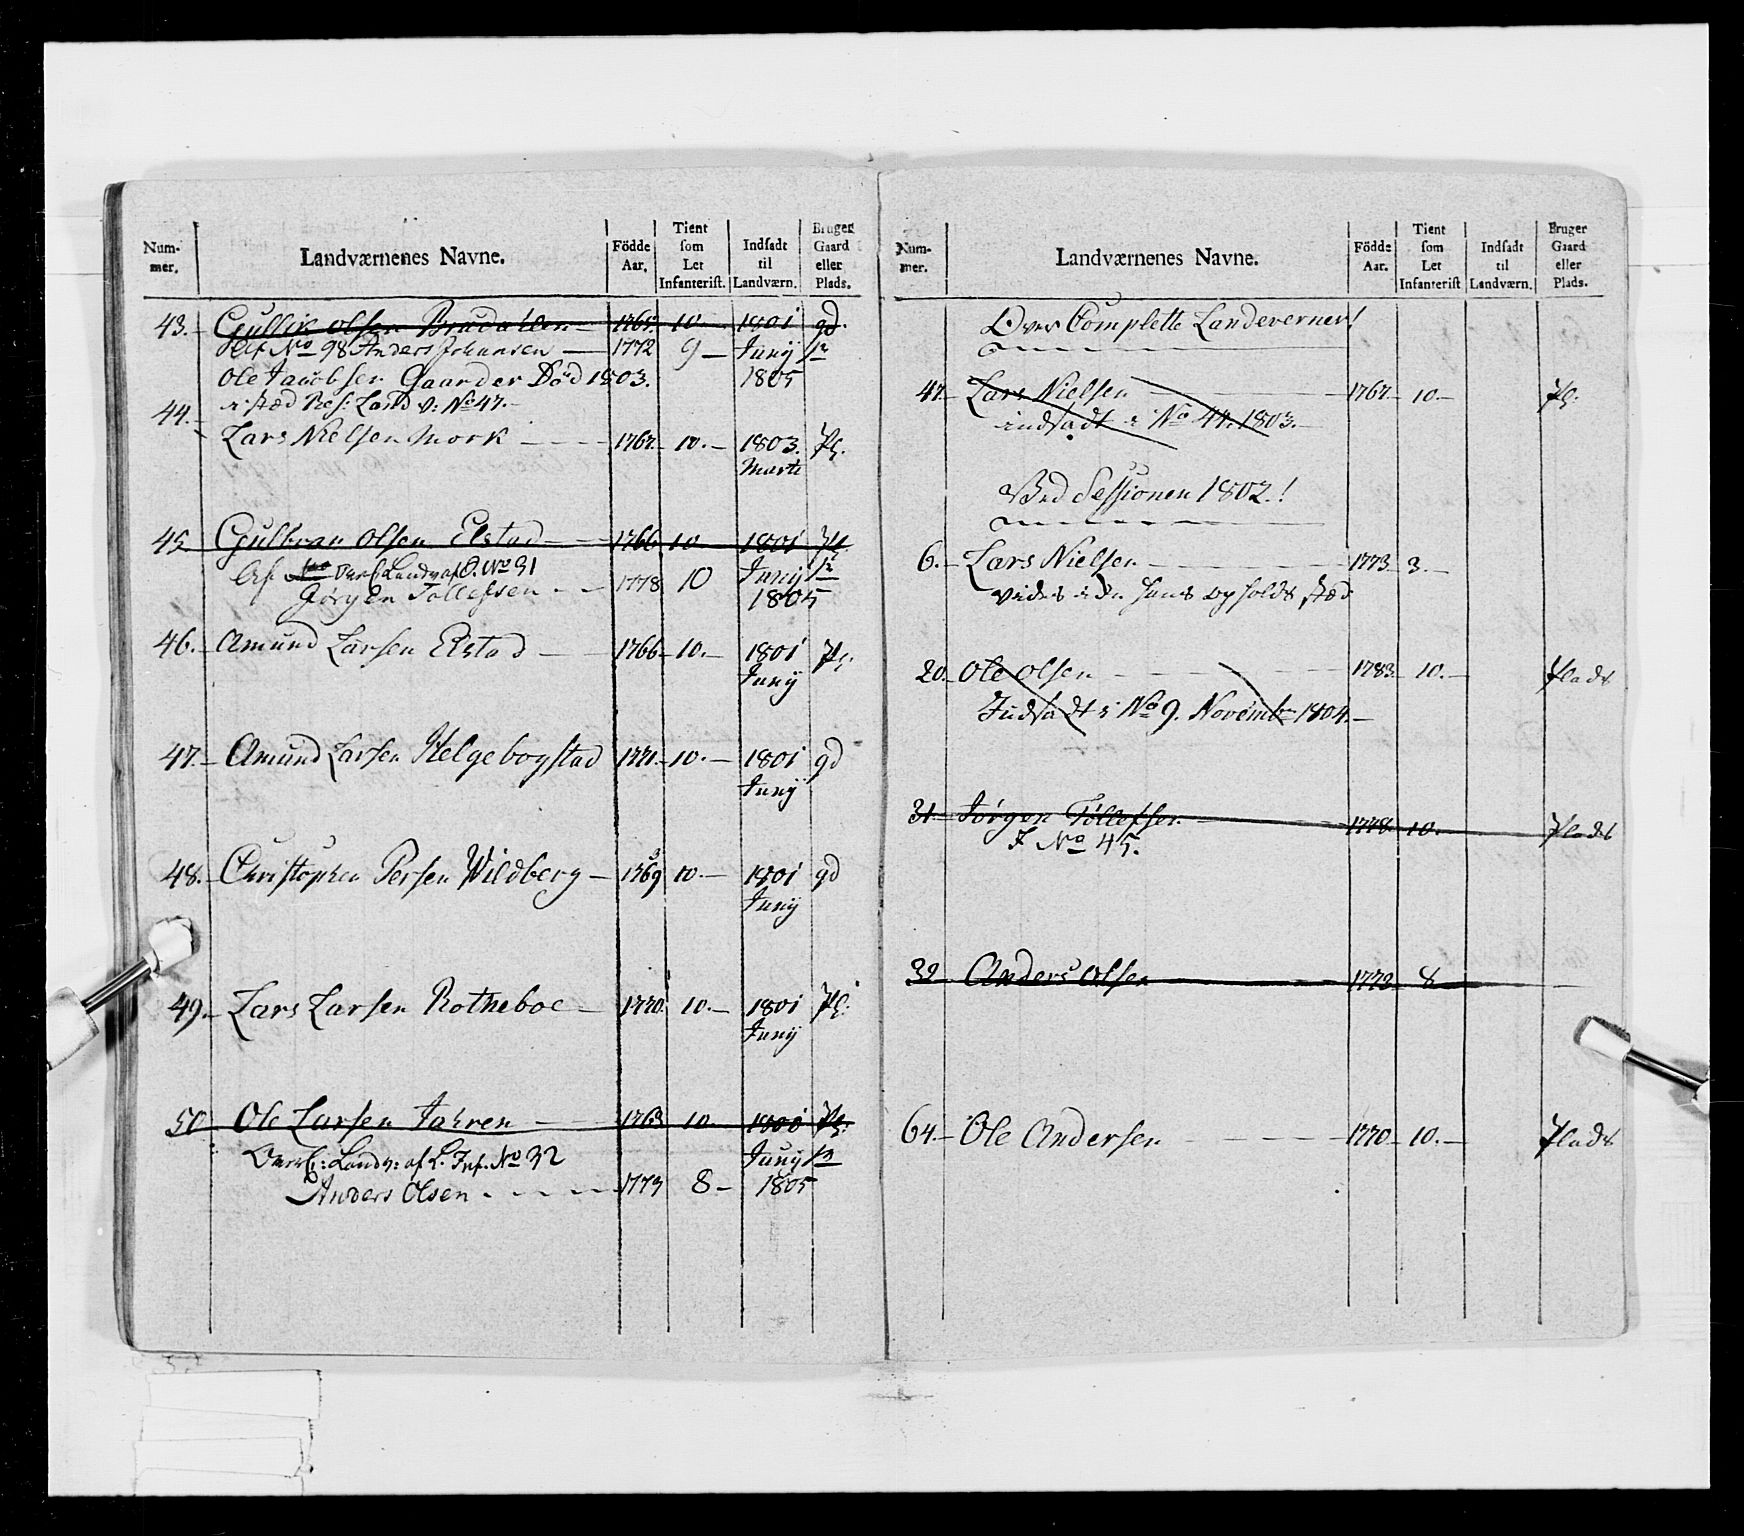 Num-mer. Landværnenes Navne. Födde Aar. Tient som Let Infanterist. Indsadt til Landværn. Bruger Gaard eller Plads.
43.- Gullik Olsen Brudalen 1765. 10 1801 gd.
No 98 Anders Johansen — 1772 9 — Junij
Ole Jacobsen Gaarder Död 1803. 1805
44.- i stæd Res: Land v: No 47.-
Lars Nielsen Mork - - - 1767. 10. - 1803. Pl.
Marti
45 Gulbran Olsen Elstad - 1766 10 1801 Pl
Af Overc. Landv. af O. No 31 Junij
Jörgen Tollefsen - - 1778 10 1805
46.- Amund Larsen Elstad — 1766. 10. - 1801 Pl.
Junij
47.- Amund Larsen Helgebogstad 1771. 10. - 1801 gd
Junij
48.- Christopher Persen Wildberg - 1769 10. - 1801 gd
Junij
49.- Lars Larsen Rotneboe - 1770. 10. - 1801 Pl.
Junij
50 Ole Larsen Jahren 1763 10 1801 Pl.
Overc: Landv: af L. Inf. No 32 Junij
Anders Olsen - - - - 1773 8 - 1805
Num-mer. Landværnenes Navne. Födde Aar. Tient som Let Infanterist. Indsadt til Landværn. Bruger Gaard eller Plads.
Over Complette Landeverner!
47. Lars Nielsen 1767. 10. - Pl.
indsadt i No 44. 1803. -
Ved Sessionen 1802.!
6. - Lars Nielsen - 1773. 3. -
vides ei hans opholds stæd
20. - Ole Olsen - 1783. 10. - Plads
Indsadt i No 9. Novembr 1804. -
31 Jörgen Tollefsen 1778. 10. - Plads
I No 45.
32 Anders Olsen 1773. 8
64. - Ole Andersen - 1770. 10. - Plads